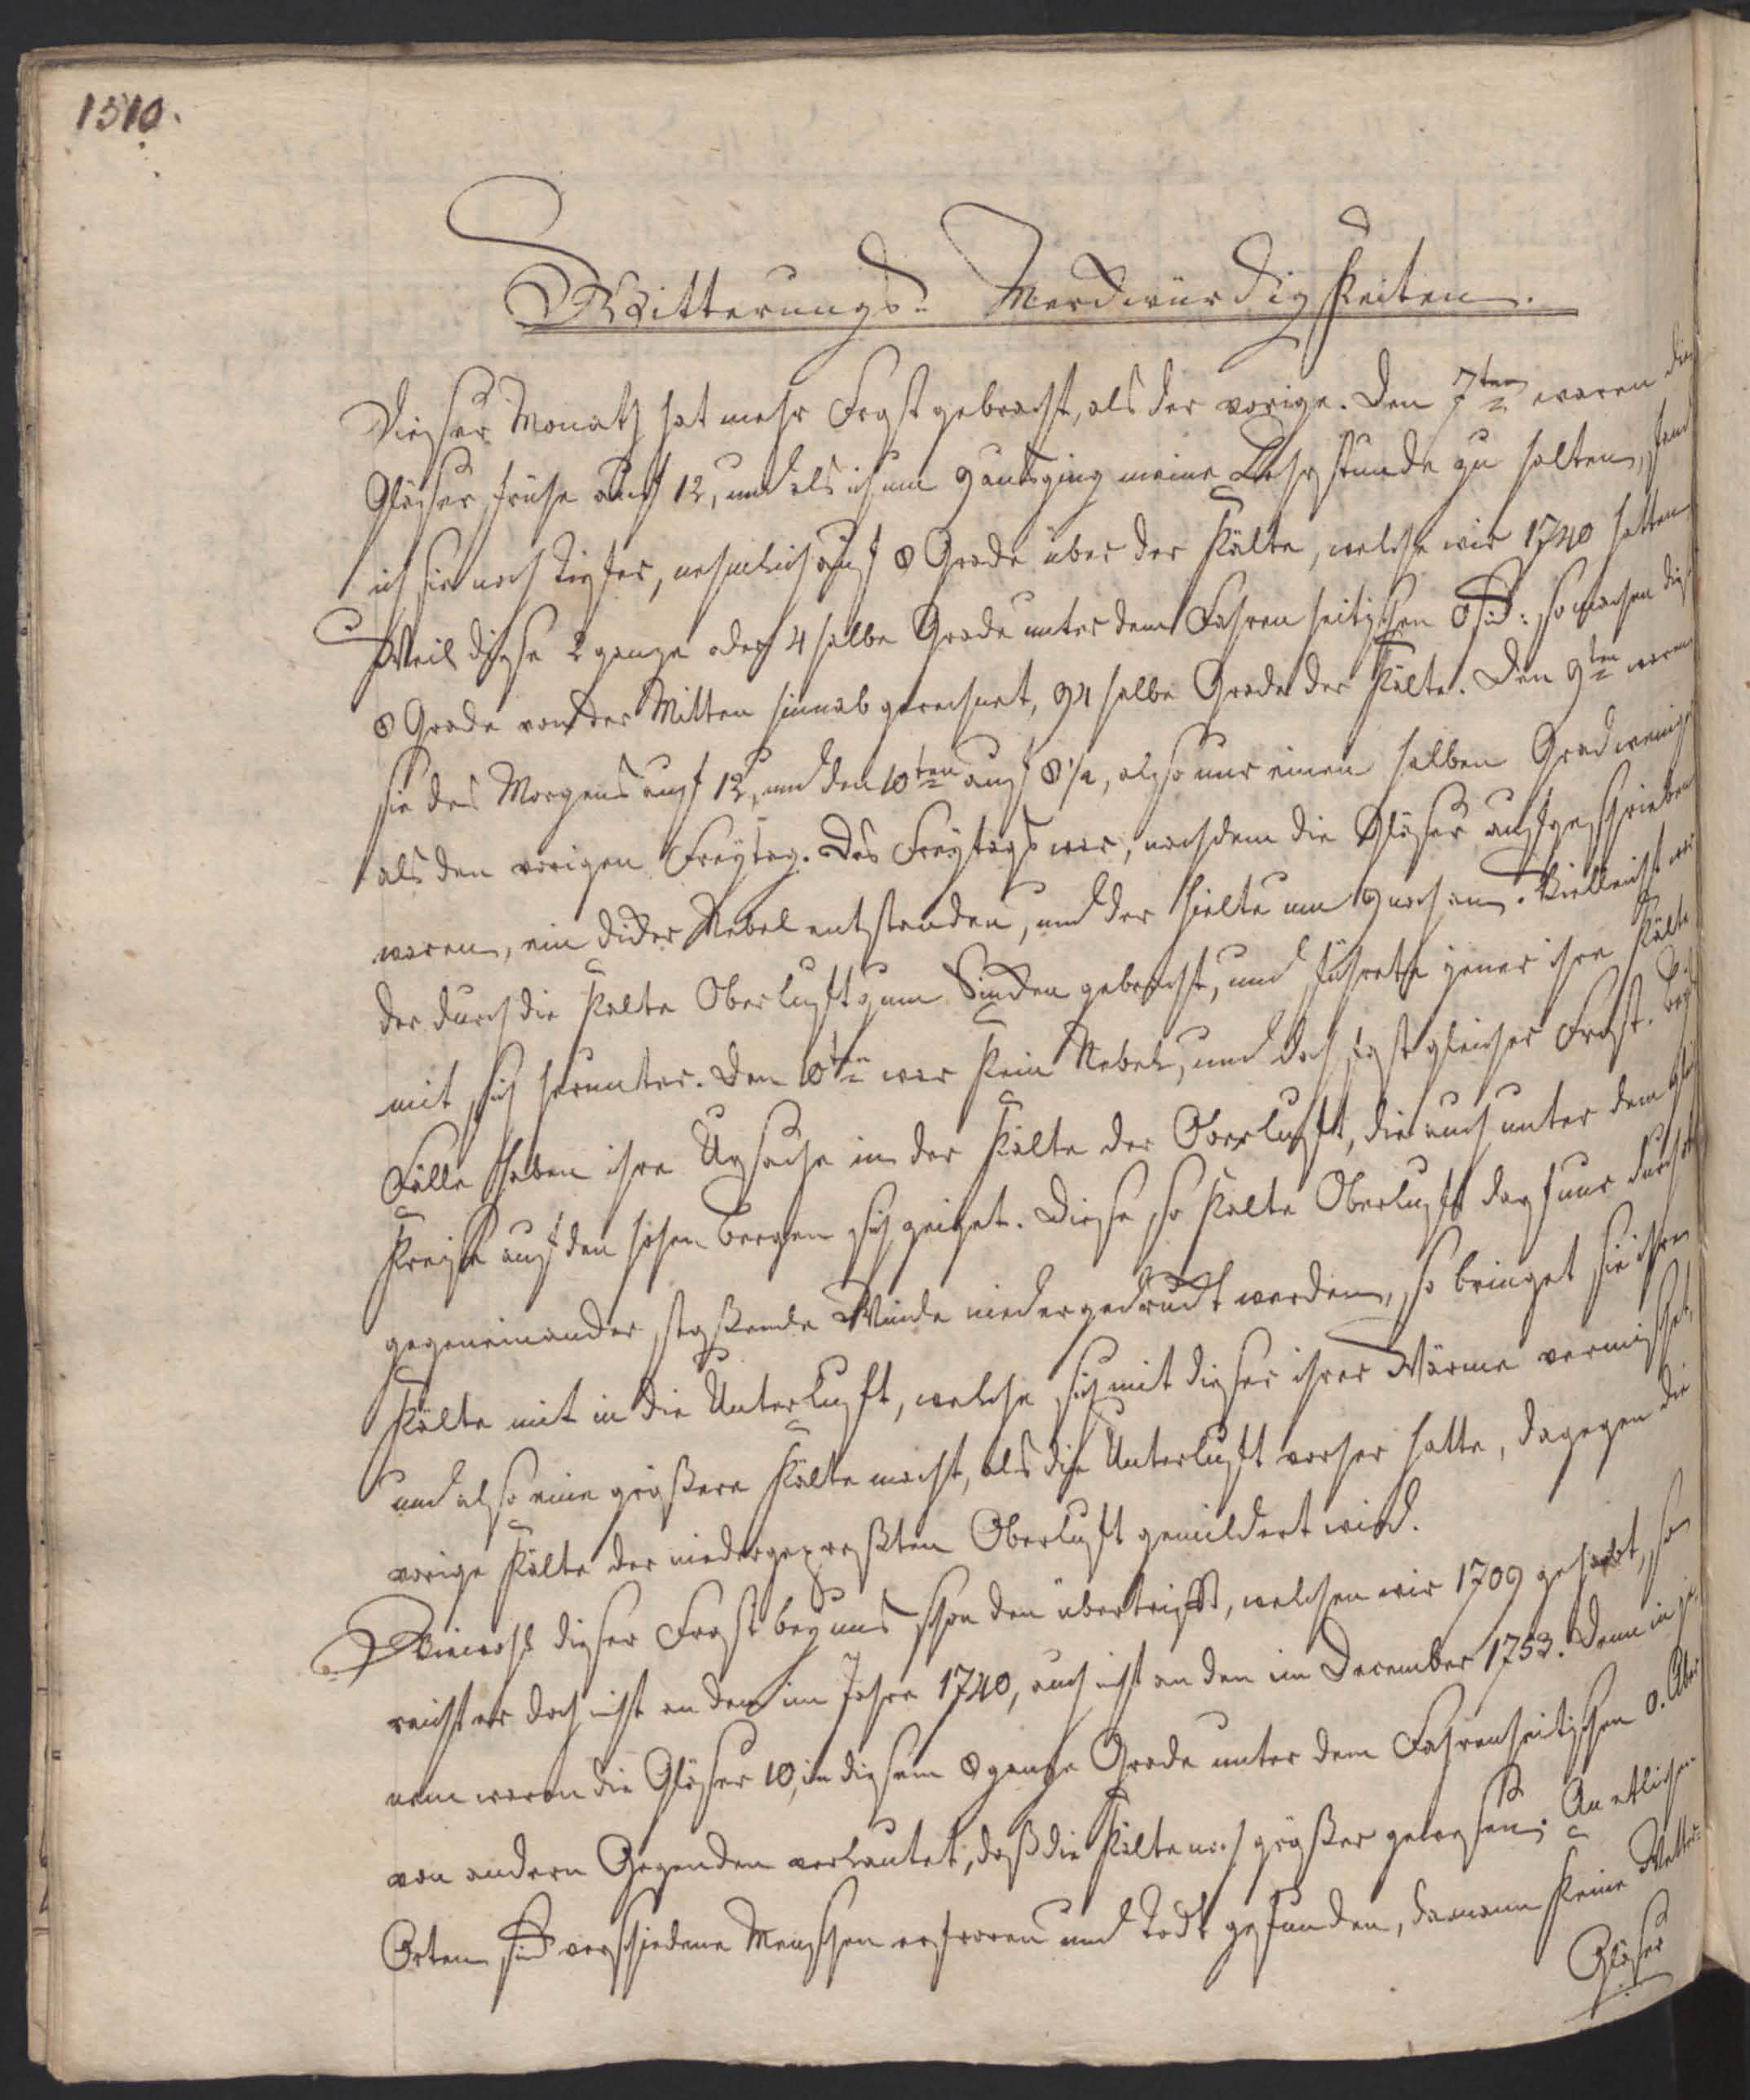 1510.
Witterungs- Merckwürdigkeiten.
Dieser Monath hat mehr Frost gebracht, als der vorige. Den 7ten waren die
Gläser frühe auf 12, und als ich um 9 ausging meine Lehrstunde zu halten, fand
ich sie noch tiefer, nehmlich auf 8 Grade über der Kälte, welche wir 1740 hatten
Weil diese 2 ganze oder 4 halbe Grade unter dem Fahrenheitischen 0 sind: so machen diese
8 Grade von der Mitten hinnab gerechnet, 94 halbe Grade der Kälte. Den 9ten waren
sie des Morgens auf 12, und den 10ten auf 8 1/2, also nur einen halben Grad weniger
als den vorigen Freytag. Des Freytags war, nachdem die Gläser aufgeschrieben
waren, ein dicker Nebel entstanden, und der hielte um 9 noch an. Vielleicht war
der durch die kalte Oberluft zum Sincken gebracht, und führete jener ihre Kälte
mit sich herunter. Den 10ten war kein Nebel, und doch fast gleicher Frost. Beyde
Fälle haben ihre Ursache in der Kälte der Oberluft, die auch unter dem Gleich
Kreise auf den hohen Bergen sich zeiget. Diese so kalte Oberluft darf nur durch
gegeneinander stoßende Winde niedergedruckt werden, so bringet sie ihre
Kälte mit in die Unterluft, welche sich mit dieser ihrer Wärme vermischet,
und also eine größere Kälte macht, als die Unterluft vorher hatte, dagegen die
vorige Kälte der niedergepreßten Oberluft gemildert wird.
Wiewohl dieser Frost bey uns schon den übertrifft, welchen wir 1709 gehabt, so
reicht er doch nicht an den im Jahre 1740, auch nicht an den im December 1753. Denn in je-
nem waren die Gläser 10, in diesem 8 ganze Grade unter dem Fahrenheitischen 0. Aber
von andern Gegenden verlautet, daß die Kälte noch größer gewesen. An etlichen
Orten sind verschiedene Menschen erfroren und todt gefunden, da man keine Wetter-
Gläser